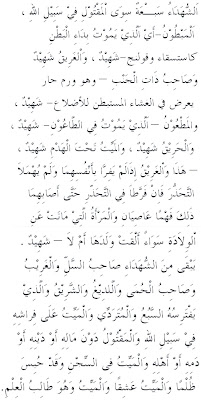 اَلشُّهَدَاءُ سَبْعَةٌ سِوَى اَلْمَقْتُولِ فِيْ سَبِيْلِ اللهِ ،
اَلْمَبْطُوْنُ—أَيْ اَلَّذِيْ يَمُوْتُ بِدَاءِ الْبَطْنِ
كاستسقاء وقولنج—شَهِيْدٌ ، وَاَلْغَرِيْقُ شَهِيْدٌ
وَصَاحِبُ ذَاتِ الْجَنْبِ — وهو ورم حار
يعرض في الغشاء المستبطن للأضلاع— شَهِيْدٌ ،
وَالْمَطْعُوْنُ — اَلَّذِيْ يَمُوْتُ فِي الطَّاعُوْنِ— شَهِيْدٌ ،
وَالْحَرِيْقُ شَهِيْدٌ ، وَالْمَيِّتُ تَحْتَ الْهَدْمِ شَهِيْدٌ
— هَذَا وَالْغَرِيْقُ إِذَالَمْ يَغِرَّا بِأَنْفُسِهِمَا وَلَمْ يُهْمِلَا
التَّحَذُّرَ فَاِنْ فَرَّطَا فِي التَّحَذُّرِ حَتَّى أَصَابَهِمَا
ذَلِكَ فَهُمَا عَاصِيَانِ وَالْمَرْأَةُ الَّتِيْ مَاتَتْ عَنِ
الْوِلاَدَةِ سَوَاءٌ أَلْقَتْ وَلَدَهَا أَمْ لاَ — شَهِيْدٌ .
يَبْقَى مِنَ الشُّهَدَاءِ صَاحِبُ السِّلِّ وَالْغَرِيْبُ
وَصَاحِبُ الْحُمَى وَالَّلدِيْغُ وَالشَّرِيْقُ وَالَّذِيْ
يَفْتَرِسُهُ السَّبُعُ وَالْمُتَرَدِّي وَالْمَيِّتُ عَلَى فِرَاشِهِ
فِيْ سَبِيْلِ اللهِ وَالْمَقْتُوْلُ دُوْنَ مَالِهِ أَوْ دِيْنِهِ أَوْ
دَمِهِ أَوْ أَهْلِهِ وَالْمَيِّتُ فِى السِّجْنِ وَقَدْ حُبِسَ
ظُلْمًا وَالْمَيِّتُ عِشْقًا وَالْمَيِّتُ وَهُوَ طَالِبُ الْعِلْمِ.